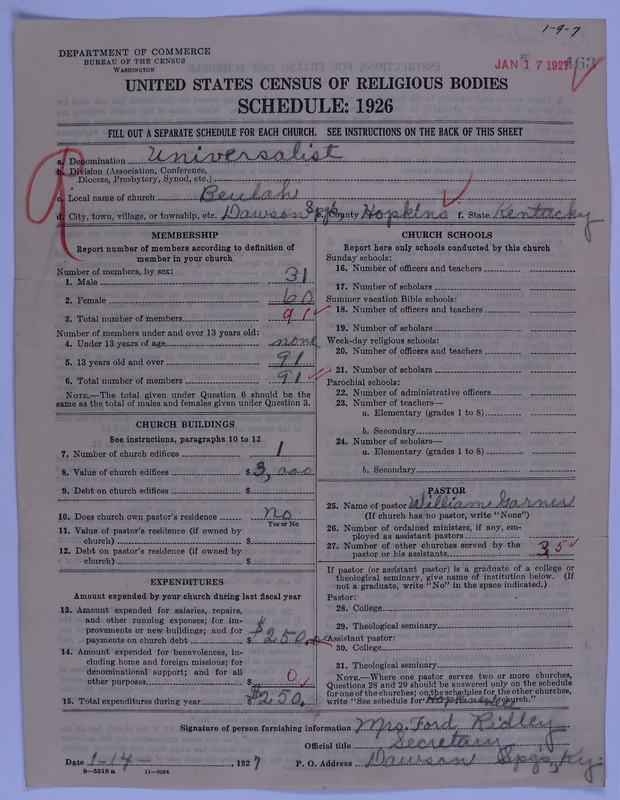 1-9-7
DEPARTMENT OF COMMERCE
BUREAU OF THE CENSUS
WASHINGTON
JAN 17 1927
UNITED STATES CENSUS OF RELIGIOUS BODIES
SCHEDULE: 1926
FILL OUT A SEPARATE SCHEDULE FOR EACH CHURCH. SEE INSTRUCTIONS ON THE BACK OF THIS SHEET
a. Denomination Universalist
b. Division (Association, Conference, Diocese, Presbytery, Synod, etc.)
c. Local name of church Beulah
d. City, town, village, or township, etc. Dawson Spgs County Hopkins f. State Kentucky
MEMBERSHIP
Report number of members according to definition of member in your church
Number of members, by sex:
1. Male 31
2. Female 60
3. Total number of members 91
Number of members under and over 13 years old:
4. Under 13 years of age none
5. 13 years old and over 91
6. Total number of members 91
NOTE.—The total given under Question 6 should be the same as the total of males and females given under Question 3.
CHURCH BUILDINGS
See instructions, paragraphs 10 to 12
7. Number of church edifices 1
8. Value of church edifices $3,000
9. Debt on church edifices $
10. Does church own pastor's residence no
Yes or No
11. Value of pastor's residence (if owned by church) $
12. Debt on pastor's residence (if owned by church) $
EXPENDITURES
Amount expended by your church during last fiscal year
13. Amount expended for salaries, repairs, and other running expenses; for improvements or new buildings; and for payments on church debt $ $250.00
14. Amount expended for benevolences, including home and foreign missions; for denominational support; and for all other purposes $ 0
15. Total expenditures during year $ $250.
CHURCH SCHOOLS
Report here only schools conducted by this church
Sunday schools:
16. Number of officers and teachers
17. Number of scholars
Summer vacation Bible schools:
18. Number of officers and teachers
19. Number of scholars
Week-day religious schools:
20. Number of officers and teachers
21. Number of scholars
Parochial schools:
22. Number of administrative officers
23. Number of teachers—
a. Elementary (grades 1 to 8)
b. Secondary
24. Number of scholars—
a. Elementary (grades 1 to 8)
b. Secondary
PASTOR
25. Name of pastor William Garner
(If church has no pastor, write "None")
26. Number of ordained ministers, if any, employed as assistant pastors
27. Number of other churches served by the pastor or his assistants 5
If pastor (or assistant pastor) is a graduate of a college or theological seminary, give name of institution below. (If not a graduate, write "No" in the space indicated.)
Pastor:
28. College
29. Theological seminary
Assistant pastor:
30. College
31. Theological seminary
NOTE.—Where one pastor serves two or more churches, Questions 28 and 29 should be answered only on the schedule for one of the churches; on the schedules for the other churches, write "See schedule for Hopkinsville church."
Signature of person furnishing information Mrs. Ford Ridley
Official title Secretary
Date 1-14- , 1927 P. O. Address Dawson Spgs, Ky.
8-5518a 11-9054